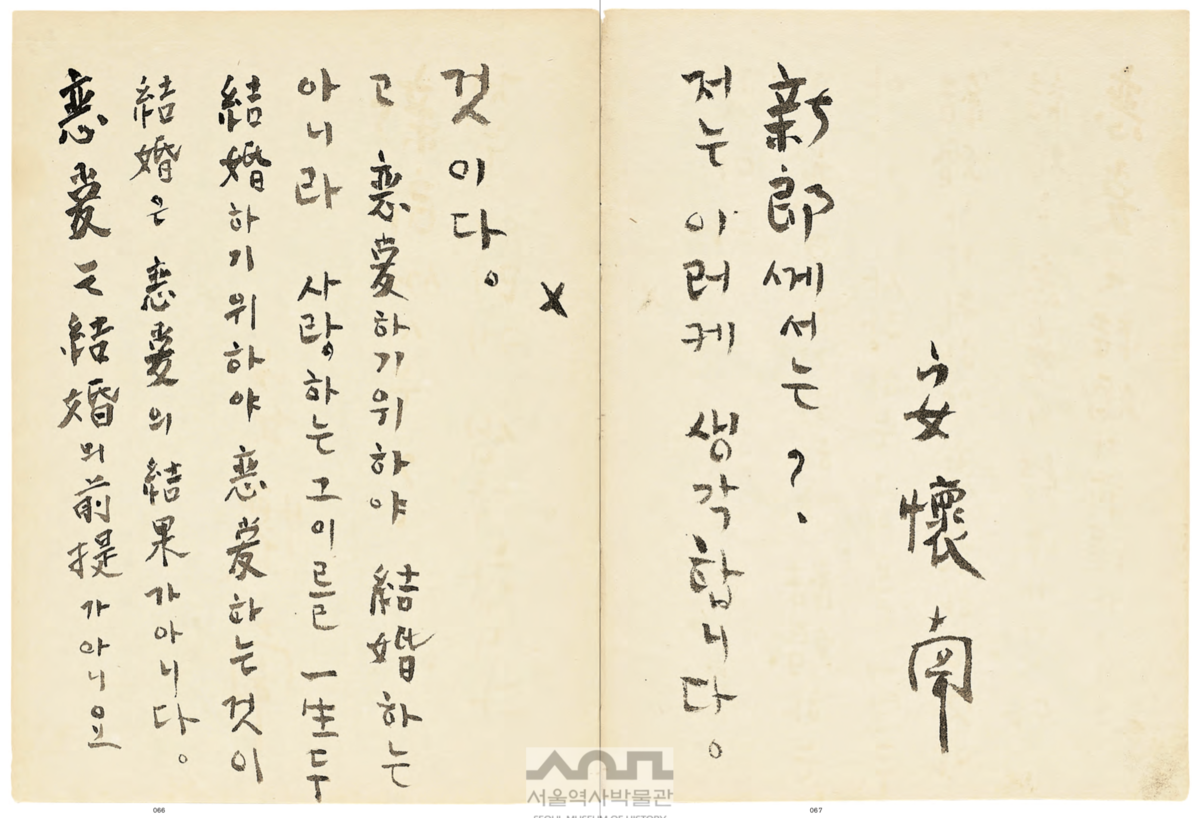 恋愛는 結婚의 前提가 아니요
結婚은 恋愛의 結果가 아니다。
結婚하기 위하야 恋愛하는 것이
아니라 사랑하는 그이를 一生두
고 恋愛하기 위하야 結婚하는
것이다。
×
저는 이러케 생각합니다。
新郎께서는?.
安懷南
서울역사박물관
SEOUL MUSEUM OF HISTORY
066
067